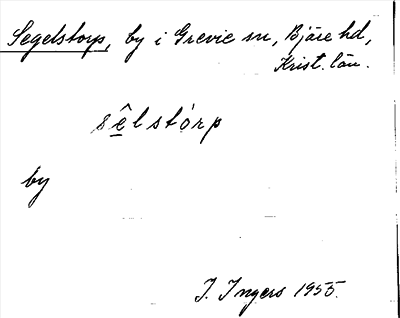 Segelstorp, by i Grevie sn, Bjäre hd,
Krist. län.
sêlstórp
by
I. Ingers 1955.